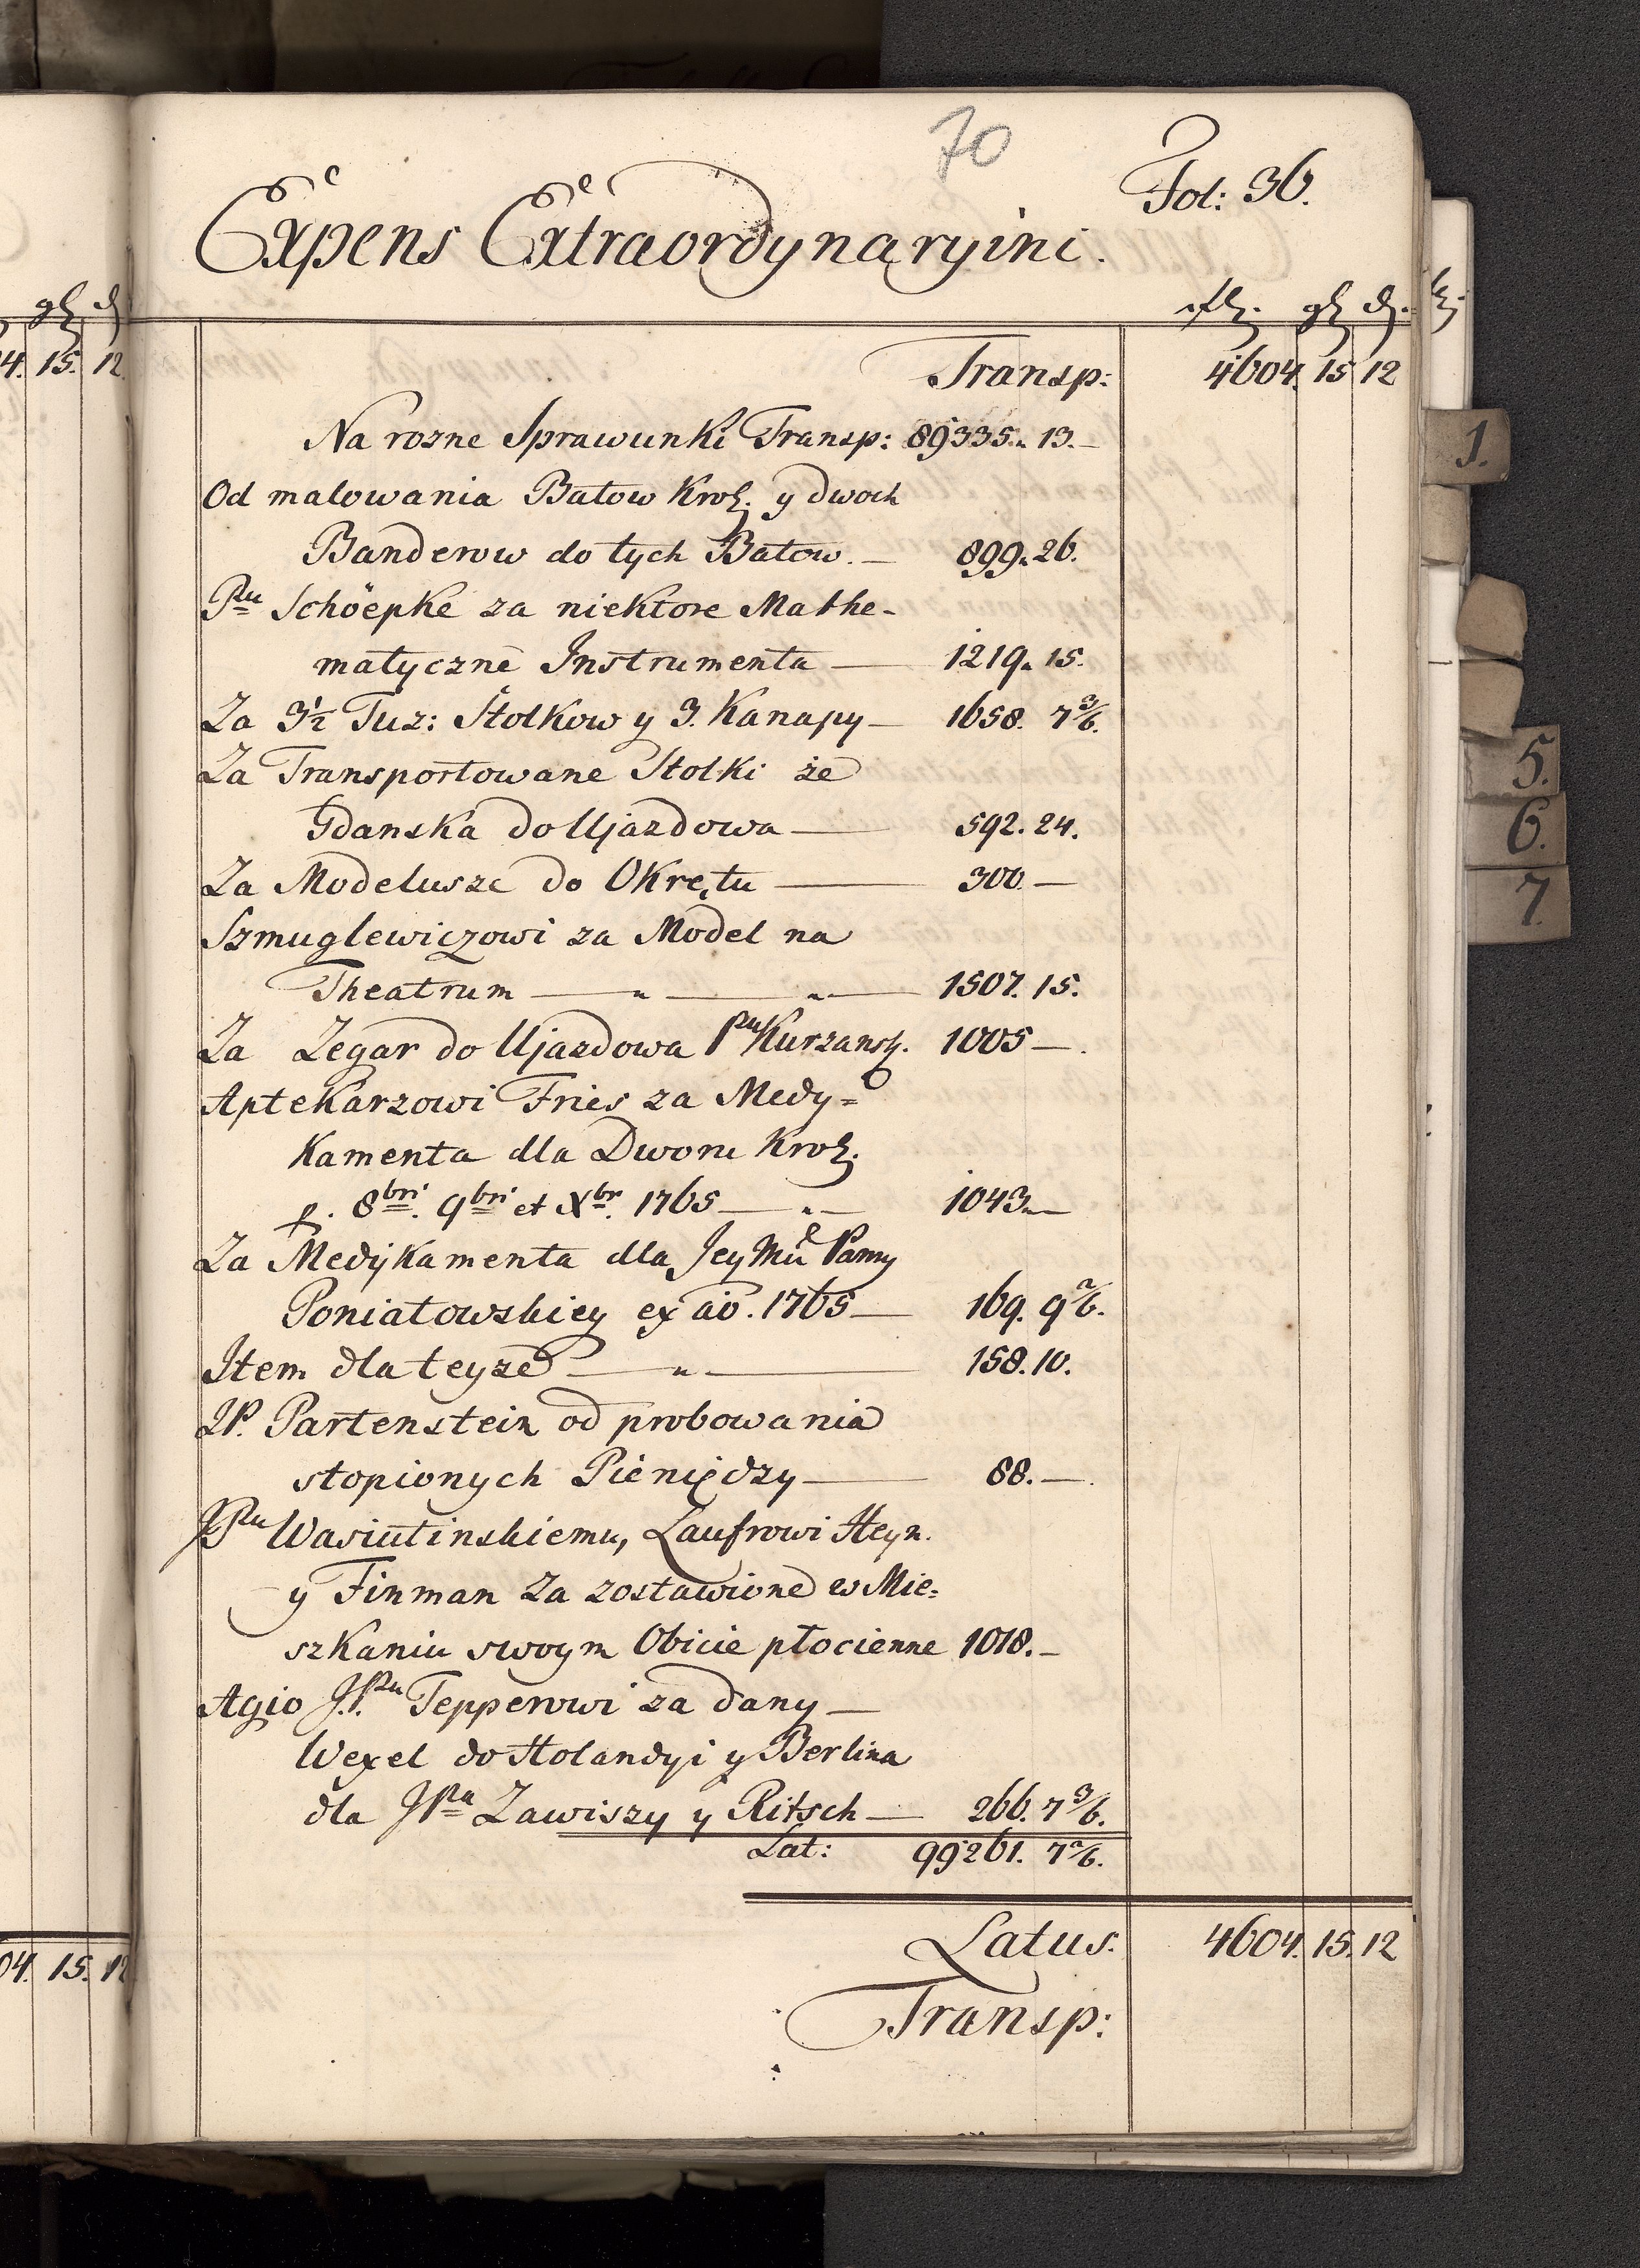 70
Fol: 36.
Expens Extraordynaryini.
fl. gl d.
Transp: 4604. 15 12
Na rozne Sprawunki Transp: 89335. 13.—
Od malowania Batow Krol. y dwoch
Banderow do tych Batow.— 899. 26.
Pnu Schöepke za niektore Mathe-
matyczne Instrumenta — 1219. 15.
Za 3 1/2 Tuz: Stolkow y 3. Kanapy — 1658. 7 3/6.
Za Transportowane Stolki ze
Gdanska do Ujazdowa — 592. 24.
Za Modelusze do Okrętu — 300.—
Szmuglewiczowi za Model na
Theatrum — " — " — 1507. 15.
Za Zegar do Ujazdowa Pnu Kurzansk. 1005 —.
Aptekarzowi Fries za Medy=
kamenta dla Dworu Krol.
p. 8bri. 9bri et Xbr. 1765 — " — 1043.—
Za Medykamenta dla Jey Mci Panny
Poniatowskiey ex ao. 1765 — 169. 9 2/6.
Item dla teyze — " — 158. 10.
JP. Partenstein od probowania
stopionych Pieniędzy — 88.—.
JPnu Wasiutinskiemu, Laufrowi Heyn.
y Finman za zostawione w Mie=
szkaniu swoym Obicie płocienne 1018.—
Agio J.Pnu Tepperowi za dany —
Wexel do Holandyi y Berlina
dla JPna Zawiszy y Ritsch — 266. 7 3/6.
Lat: 99261. 7 2/6.
Latus. 4604. 15. 12
Transp:
gl d
4. 15. 12
04. 15. 12
1.
5.
6.
7.